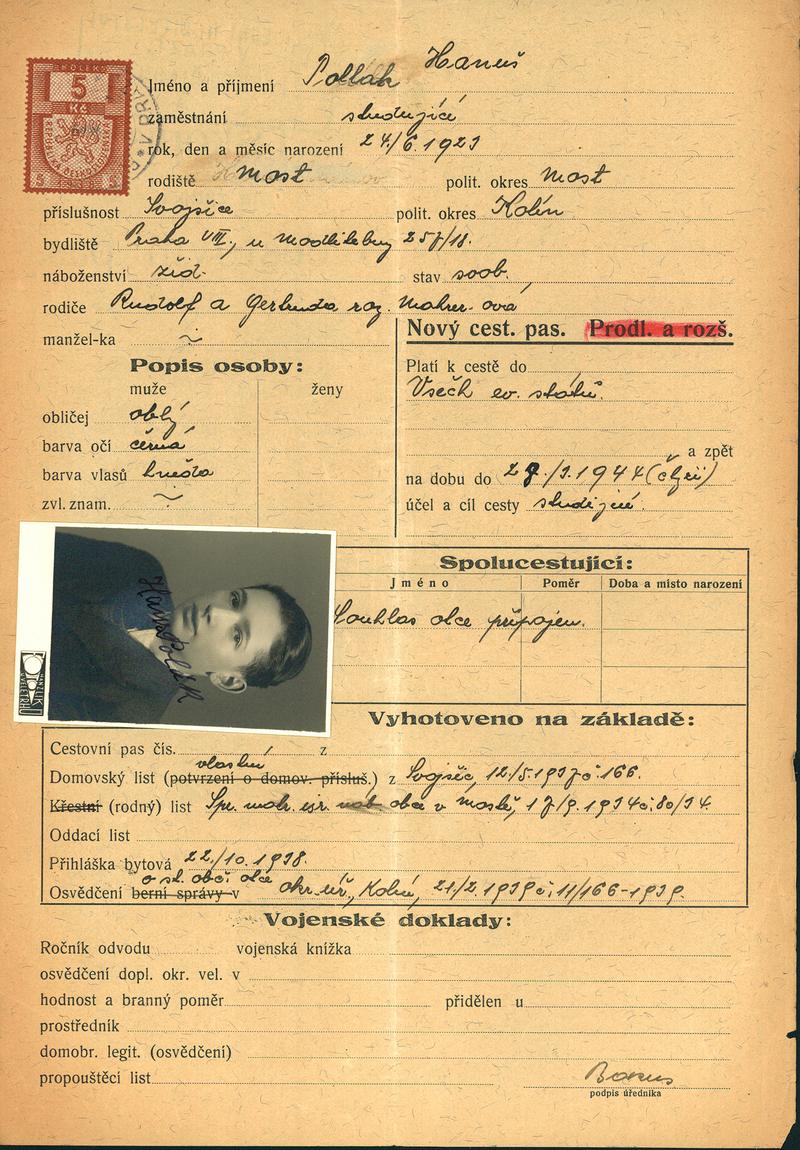 KOLEK
5
Kč
REPUBLIKA ČESKOSLOVENSKÁ
Jméno a příjmení Pollak Hanuš
zaměstnání studující
rok, den a měsíc narození 24./6. 1923
rodiště Most polit. okres Most
příslušnost Svojšice polit. okres Kolín
bydliště Praha VIII., u Modlitebny 257/18.
náboženství žid. stav svob.
rodiče Rudolf a Gertruda roz. Mahrer-ová
manžel-ka ~
Nový cest. pas. Prodl. a rozš.
Popis osoby:
muže ženy
obličej oblý
barva očí černá
barva vlasů hnědá
zvl. znam. ~
Platí k cestě do
Všech ev. států.
a zpět
na dobu do 27./3. 1944 (čtyři)
účel a cíl cesty studijní.
Hanuš Pollak
Spolucestující:
Jméno Poměr Doba a místo narození
Souhlas otce připojen.
Vyhotoveno na základě:
Cestovní pas čís. z
vlastní
Domovský list (potvrzení o domov. přísluš.) z Svojšic, 12./5. 1937 č. 166.
Křestní (rodný) list Spr. matr. isr. náb. obce v Mostě, 17/9. 1934 č. 80/34.
Oddací list
Přihláška bytová 22./10. 1938.
o st. obč. otce
Osvědčení berní správy v okr. úř., Kolín, 21/2. 1939 č. 11/166-1939.
Vojenské doklady:
Ročník odvodu vojenská knížka
osvědčení dopl. okr. vel. v
hodnost a branný poměr přidělen u
prostředník
domobr. legit. (osvědčení)
propouštěcí list
podpis úředníka